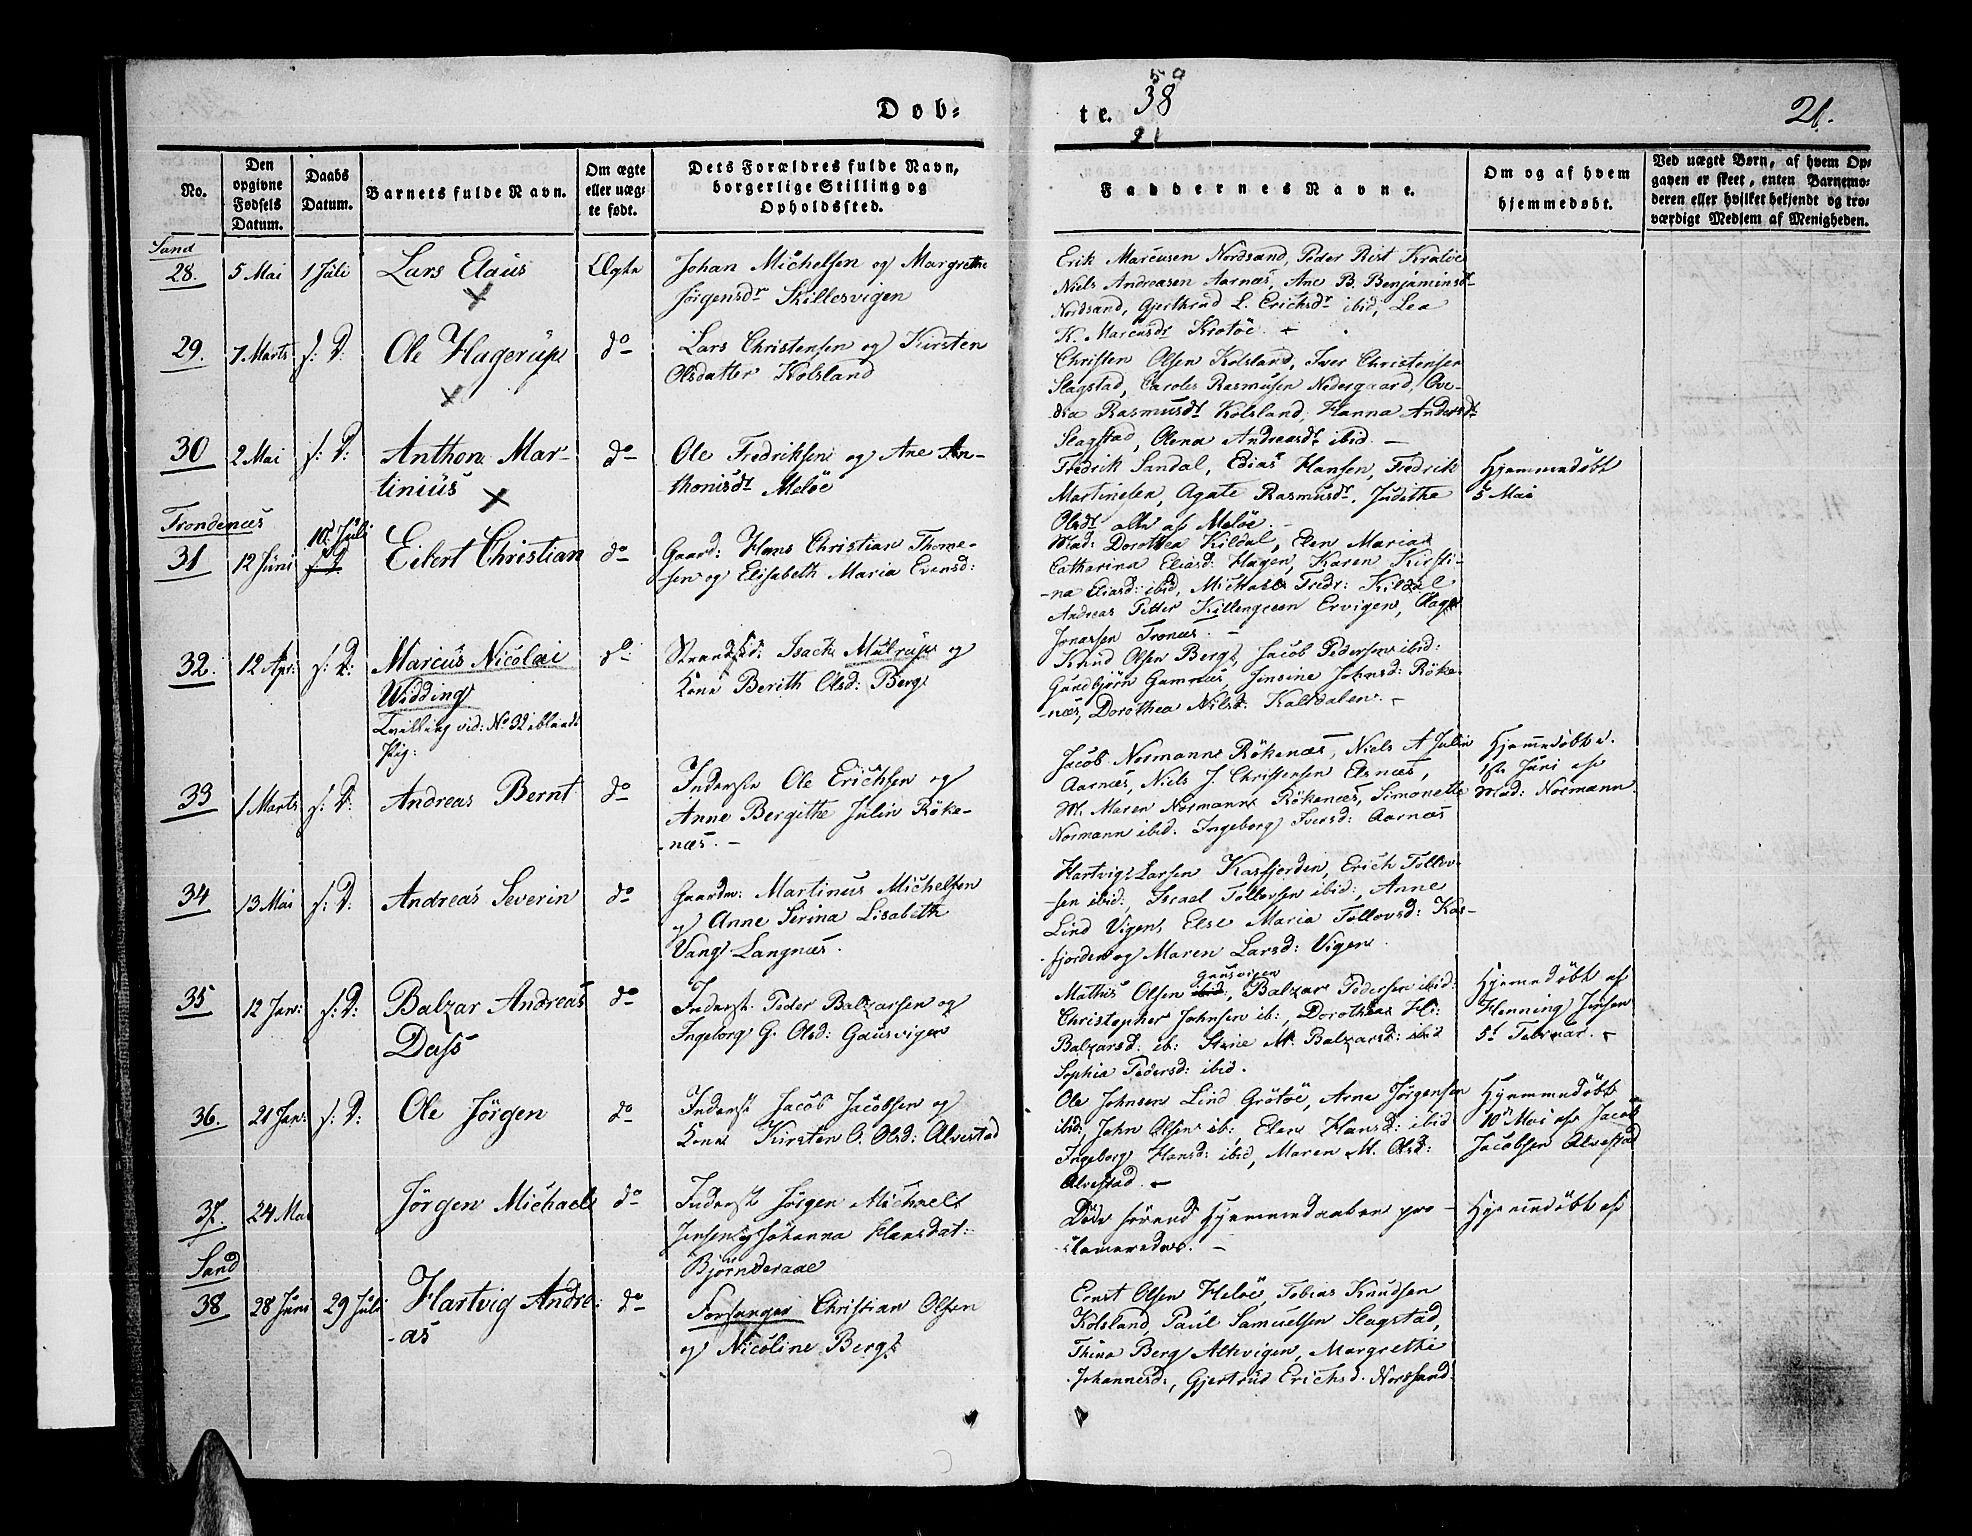 Døb-
te.
50
38
21
21.
No.
Den
opgivne
Fødsels
Datum.
Daabs
Datum.
Barnets fulde Navn.
Om ægte
eller uæg-
te født.
Dets Forældres fulde Navn,
borgerlige Stilling og
Opholdssted.
Faddernes Navne.
Om og af hvem
hjemmedøbt.
Ved uægte Børn, af hvem Op-
gaven er skeet, enten Barnemo-
deren eller hvilket bekjendt og tro-
værdigt Medlem af Menigheden.
Sand
28. 5 Mai 1 Juli Lars Elaus Ægte
Johan Michelsen og Margrethe
Jörgensdr Skillesvigen
Erik Marcusen Nordsand, Peder Rist Krotöe
Niels Andreasen Aarnæs, Ane B. Benjaminsdr
Nordsand, Gjerthrud L. Erichsdr ibid, Lea
K. Marcusdr Krotöe
29. 7 Marts s: D: Ole Hagerup do
Lars Christensen og Kirsten
Olsdatter Kolsland
Christen Olsen Kolsland, Iver Christensen
Slagstad, Caroles Rasmusen Nedergaard, Ove-
dia Rasmusdr Kolsland, Hanna Andersdr
Slagstad, Olena Andreasdr ibid.
30 2 Mai s: D: Anthon Mar-
tinius do
Ole Fredriksen og Ane An-
thonisdr Meløe
Fredrik Sandal, Edias Hansen, Fredrik
Martinesen, Agate Rasmusdr, Judithe
Olsdr alle af Meløe.
Hjemmedöbt
5 Mai
Trondenæs
31 12 Juni 10 Juli
s. D Eilert Christian do
Gaard: Hans Christian Thome-
sen og Elisabeth Maria Evensd:
Mad: Dorothea Kildal, Elen Maria
Catharina Eliasd: Hagen, Karen Kirsti-
-na Eliasd: ibid, Michael Fredr: Kildal
Andreas Petter Killengreen Ervigen, Aage
Jonassen Tronæs.
32. 12 Apr: s: D: Marcus Nicolai
Widding
Tvilling vid: No 32 iblandt
Pig:
do
Strandsid: Isach Mulrup og
Kone Berith Olsd: Berg
Knud Olsen Berg, Jacob Pedersen ibid:
Gundbjörn Gamnæs, Jensine Johnsd: Röke-
-næs, Dorothea Nilsd: Kaltdalen.
33 1 Marts s: D: Andreas Bernt do
Inderste Ole Erichsen og
Anne Bergithe Julin Röke-
-næs.
Jacob Normann Rökenæs, Niels A Julin
Aarnæs, Niels J. Christensen Elsnæs,
M. Maren Normann Rökenæs, Simonette
Normann ibid. Ingeborg Iversd: Aarnæs
Hjemmedöbt d.
1ste Juni af
Mad: Normann
34 13 Mai s: D: Andreas Severin do
Gaardm: Martinus Michelsen
og Anne Serina Lisabeth
Vang Langnæs.
Hartvig Larsen Kasfjorden, Erich Tollov-
sen ibid; Israel Tollovsen ibid; Anne
Lind Vigen, Else Maria Tollovsd: Kas-
fjorden og Maren Larsd: Vigen.
35 12 Jan: s: D: Balzar Andreas
Dass do
Inderst: Peder Balzarsen og
Ingeborg G. Olsd: Gausvigen
Gausvigen
Mathis Olsen ibid:, Balzar Pedersen ibid:
Christopher Johnsen ib:, Dorothea H:
Balzarsd: ib: Stine M. Balzarsd: ibid
Sophia Pedersd: ibid.
Hjemmedöbt af
Henning Jensen
5t Februar.
36. 21 Jan: s: D: Ole Jörgen do
Inderst Jacob Jacobsen og
Kone Kirsten O. Olsd: Alvestad
Ole Johnsen Lind Grötöe, Arne Jörgensen
ibid; John Olsen ib: Elen Hansd: ibid
Ingeborg Hansd: ibid, Maren M. Olsd:
Alvestad.
Hjemmedöbt
10 Mai af Jacob
Jacobsen Alvestad
37. 24 Mai Jörgen Michael do
Inderst Jörgen Michael
Jensen og Johanna Hansdat:
Björnderaae
Döde förend Hjemmedaaben pro-
clameredes.
Hjemmedöbt af
Sand
38 28 Juni 29 Juli Hartvig Andre-
-as do
Forsanger Christian Olsen
og Nicoline Berg
Ernst Olsen Meløe, Tobias Knudsen
Kolsland, Paul Samuelsen Slagstad,
Thina Berg Altevigen, Margrethe
Johannesd:, Gjertrud Erichsd. Nordsand.